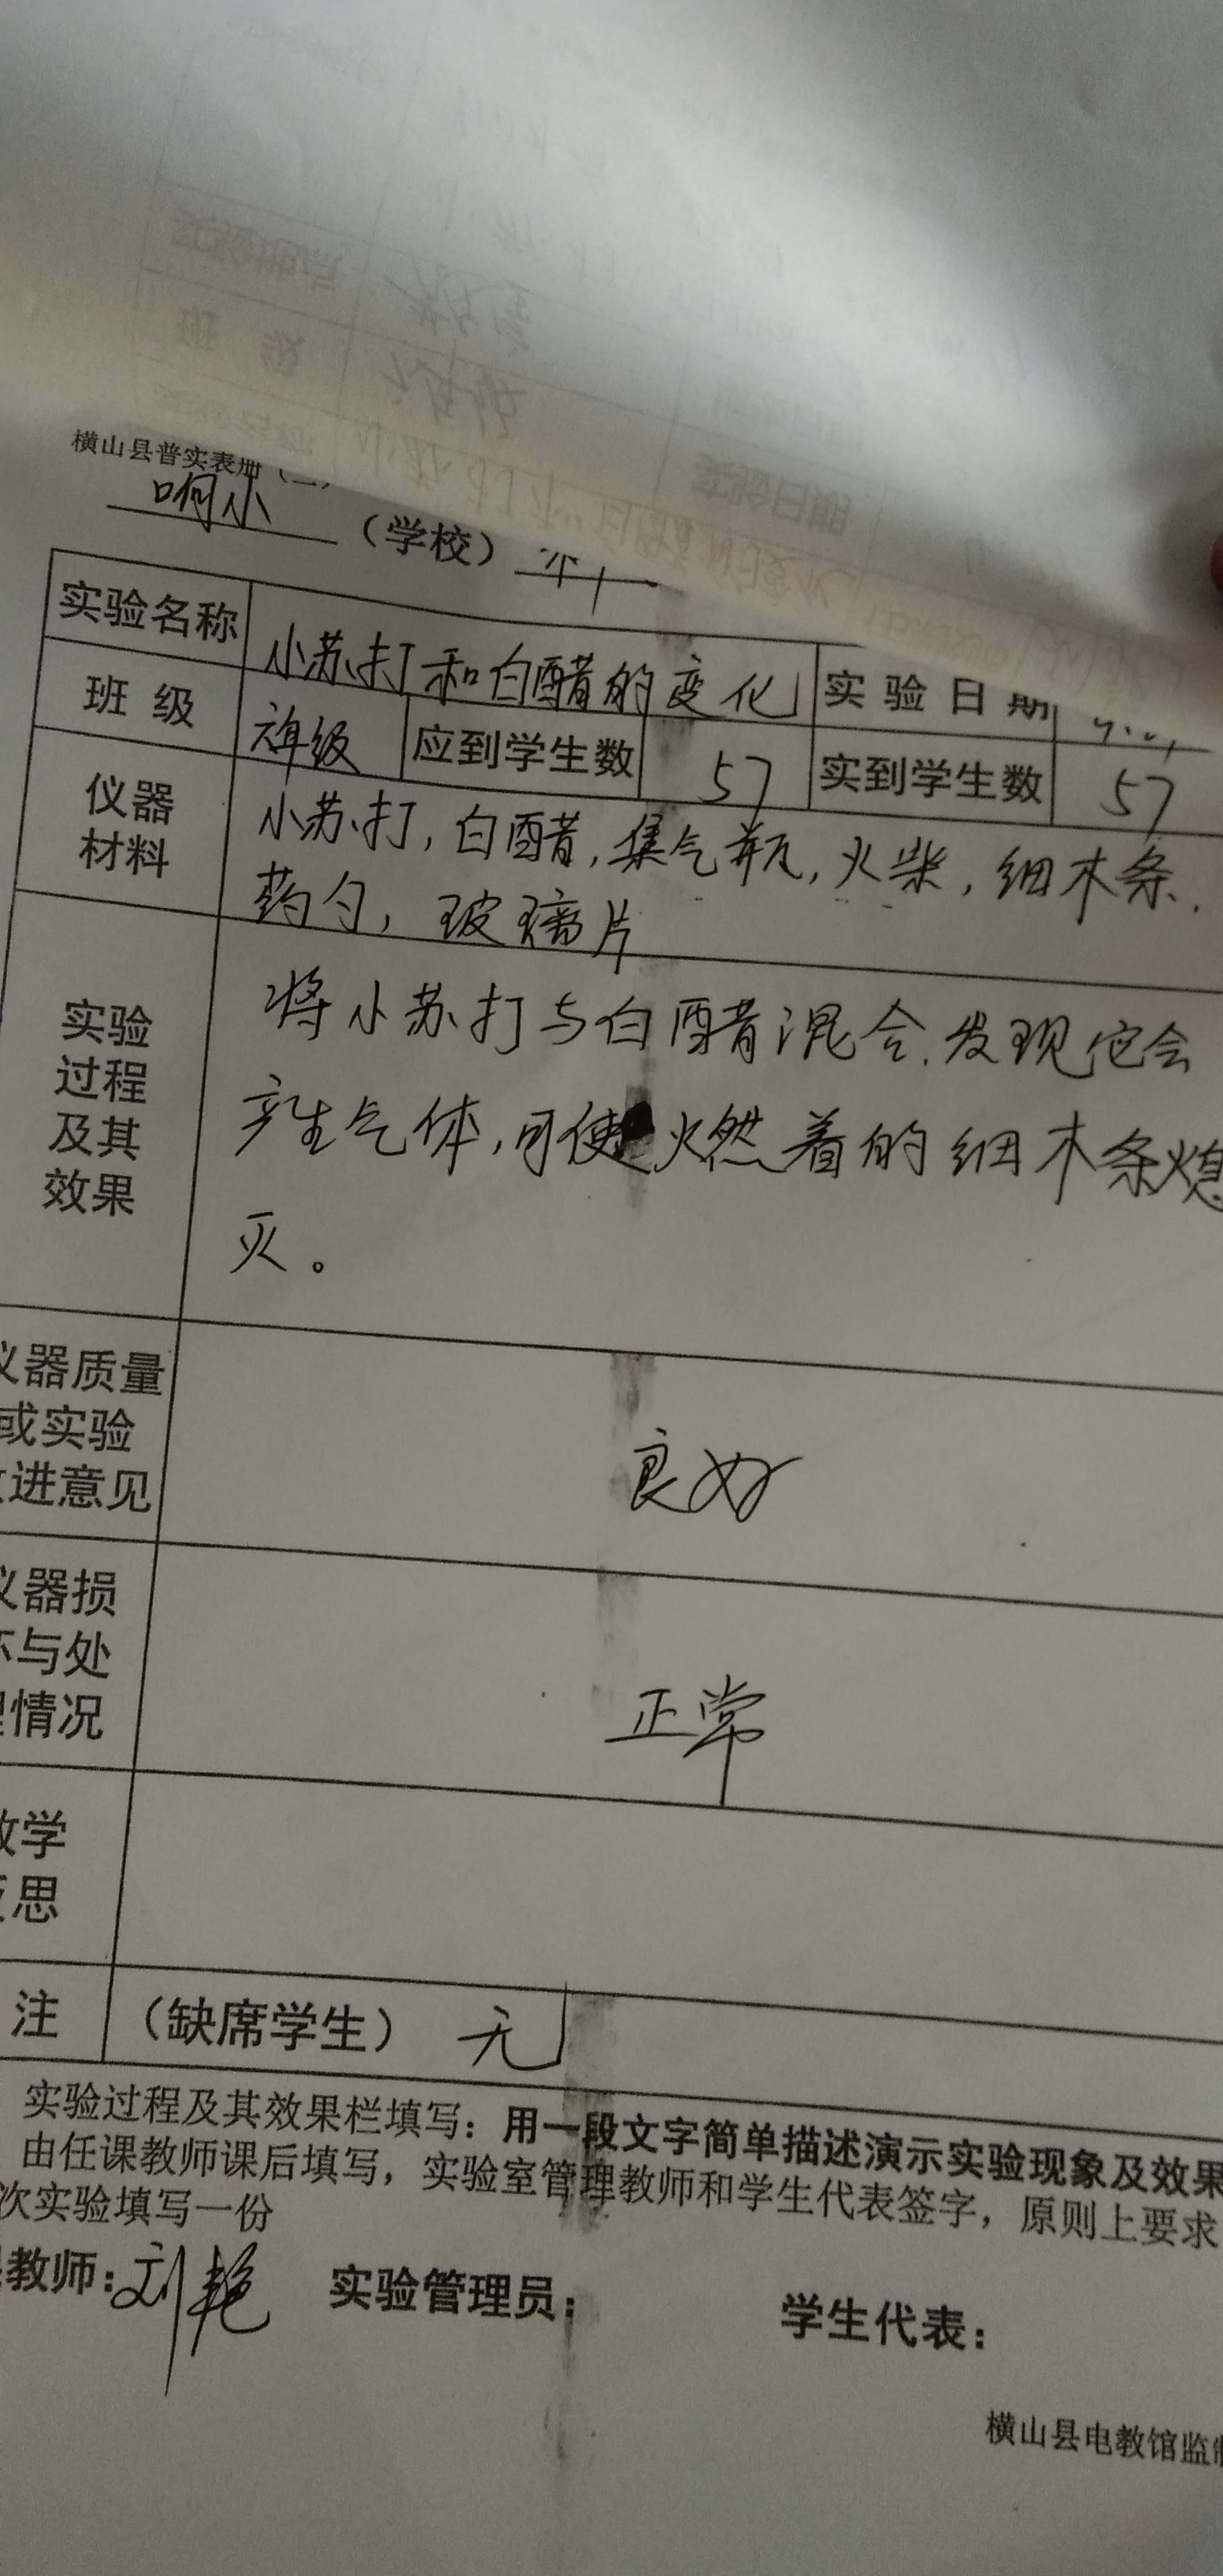 横山县普实表册
响小（学校）
实验名称 小苏打和白醋的变化 实验日期
班级 六年级 应到学生数 57 实到学生数 57
仪器
材料
小苏打，白醋，集气瓶，火柴，细木条，
药勺，玻璃片
实验
过程
及其
效果
将小苏打与白醋混合，发现它会
产生气体，可使燃着的细木条熄
灭。
仪器质量
或实验
改进意见
良好
仪器损
坏与处
理情况
正常
教学
反思
注 （缺席学生） 无
实验过程及其效果栏填写：用一段文字简单描述演示实验现象及效果
由任课教师课后填写，实验室管理教师和学生代表签字，原则上要求
次实验填写一份
教师：刘艳 实验管理员： 学生代表：
横山县电教馆监制